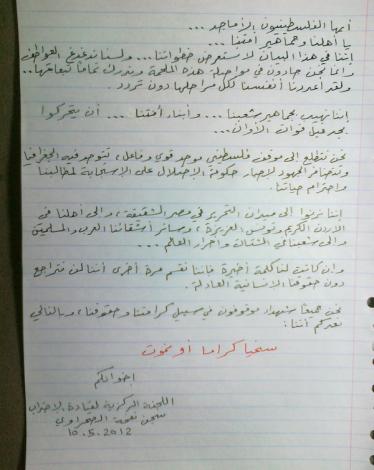 أيها الفلسطينيون الأماجد ...
يا أهلنا وجماهير أمتنا ...
إننا في هذا البيان لا نستعرض خطواتنا ... ولسنا ندغدغ العواطف
وإنما نحن جادون في مواصلة هذه الملحمة وندرك تماماً تبعاتها ...
ولقد أعددنا أنفسنا لكل مراحلها دون تردد .
إننا نهيب بجماهير شعبنا ... وأبناء أمتنا ... أن يتحركوا
بجد قبل فوات الأوان ...
نحن نتطلع إلى موقف فلسطيني موحد قوي وفاعل ، تتوحد فيه الجغرافيا
وتتضافر الجهود لإجبار حكومة الإحتلال على الإستجابة لمطالبنا
واحترام حياتنا .
إننا نرنوا إلى ميدان التحرير في مصر الشقيقة ، والى أهلنا في
الاردن الكريم وتونس العزيزة ، وسائر أشقائنا العرب والمسلمين
والى شعبنا في الشتات وأحرار العالم ...
وان كانت لنا كلمة أخيرة فإننا نقسم مرة أخرى أننا لن نتراجع
دون حقوقنا الإنسانية العادلة .
نحن جميعاً شهداء موقوفون في سبيل كرامتنا وحقوقنا ، وبالتالي
نعدكم أننا :
سنحيا كراما أو نموت
إخوانكم
اللجنة المركزية لقيادة الإضراب
سجن نفحة الصحراوي
10 . 5 . 2012